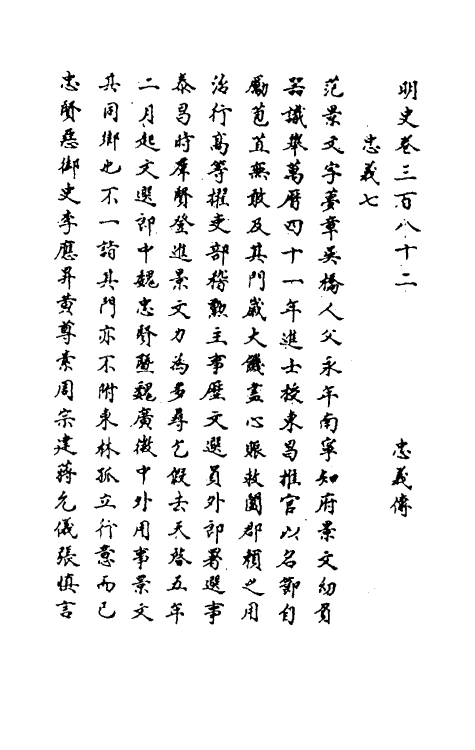 明史卷三百八十二 忠義傳
忠義七
范景文字夢章吳橋人父永年南寧知府景文幼負
器識舉萬曆四十一年進士授東昌推官以名節自
勵苞苴無敢及其門歲大饑盡心賑救闔郡賴之用
治行高等擢吏部稽勲主事歷文選員外郎署選事
泰昌時羣賢登進景文力為多尋乞假去天啓五年
二月起文選郎中魏忠賢暨魏廣微中外用事景文
其同鄉也不一詣其門亦不附東林孤立行意而已
忠賢惡御史李應昇黃尊素周宗建蔣允儀張慎言